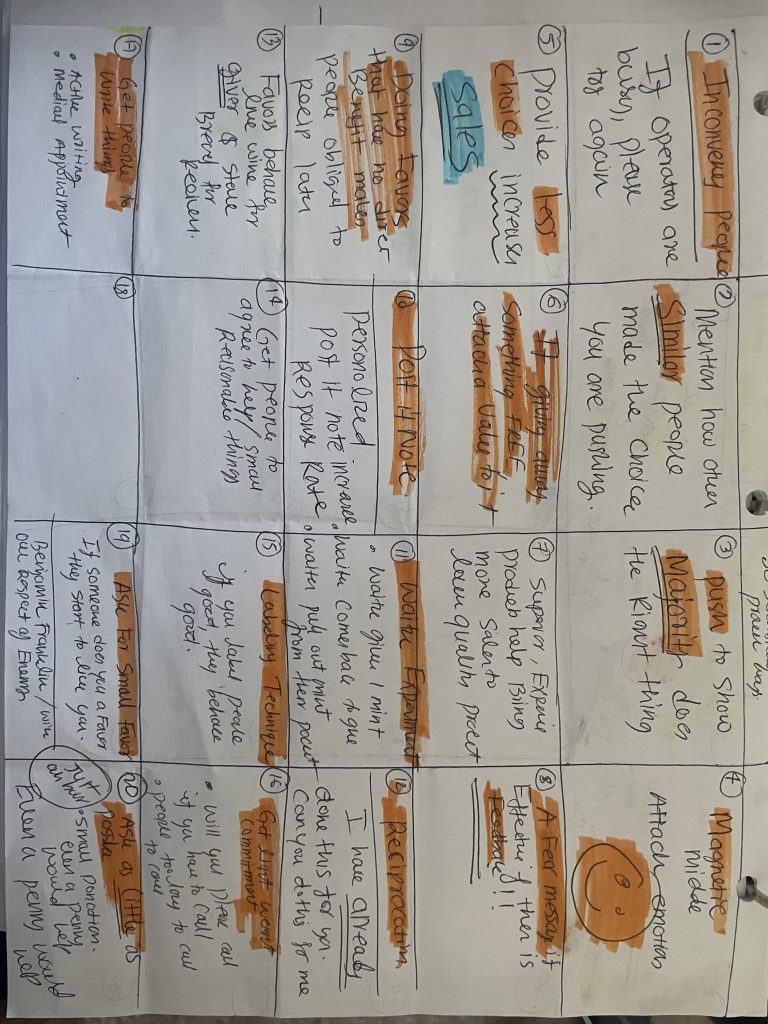 proven ways.
① Inconveny people
If operators are
busy, please
try again
② Mention how other
Similar people
made the choice
you are pushing.
③ push to show
Majority does
the Right thing
④ Magnetic
middle
Attach emotions
⑤ provide less
choices increases
Sales
⑥ If giving away
something FREE,
attach a Value to it
⑦ Superior,
products help Bring
more Sales to
lower quality
⑧ A Fear message if
Effective if there is
!!
⑨ Doing Favors
that have no direct
Benefit makes
people obliged to
help later
⑩ Post it Note
personalized
post it note increase
Response Rate
⑪ Waiter Experiment
• Waiter give 1 mint
• Waiter comes back to give
• Waiter pull out mint
from their pocket
⑫ Reciprocation
I have already
done this for you.
Can you do this for me
⑬ Favors behave
like wine for
giver & stale
Bread for
⑭ Get people to
agree to help/small
Reasonable things
⑮ Labeling Technique
if you label people
good, they behave
good.
⑯ Get
Commitment
• Will you please call
if you have to call
• people too lazy to call
to cancel
⑰ Get people to
write things
• Active writing
• Medical Appointment
⑱
⑲ Ask For Small Favor
If someone does you a Favor
they start to like you.
Benjamin Franklin/win
our Respect of Enemy
⑳ Ask as Little as
• Small Donation.
even a penny
would help
Even a penny would
help